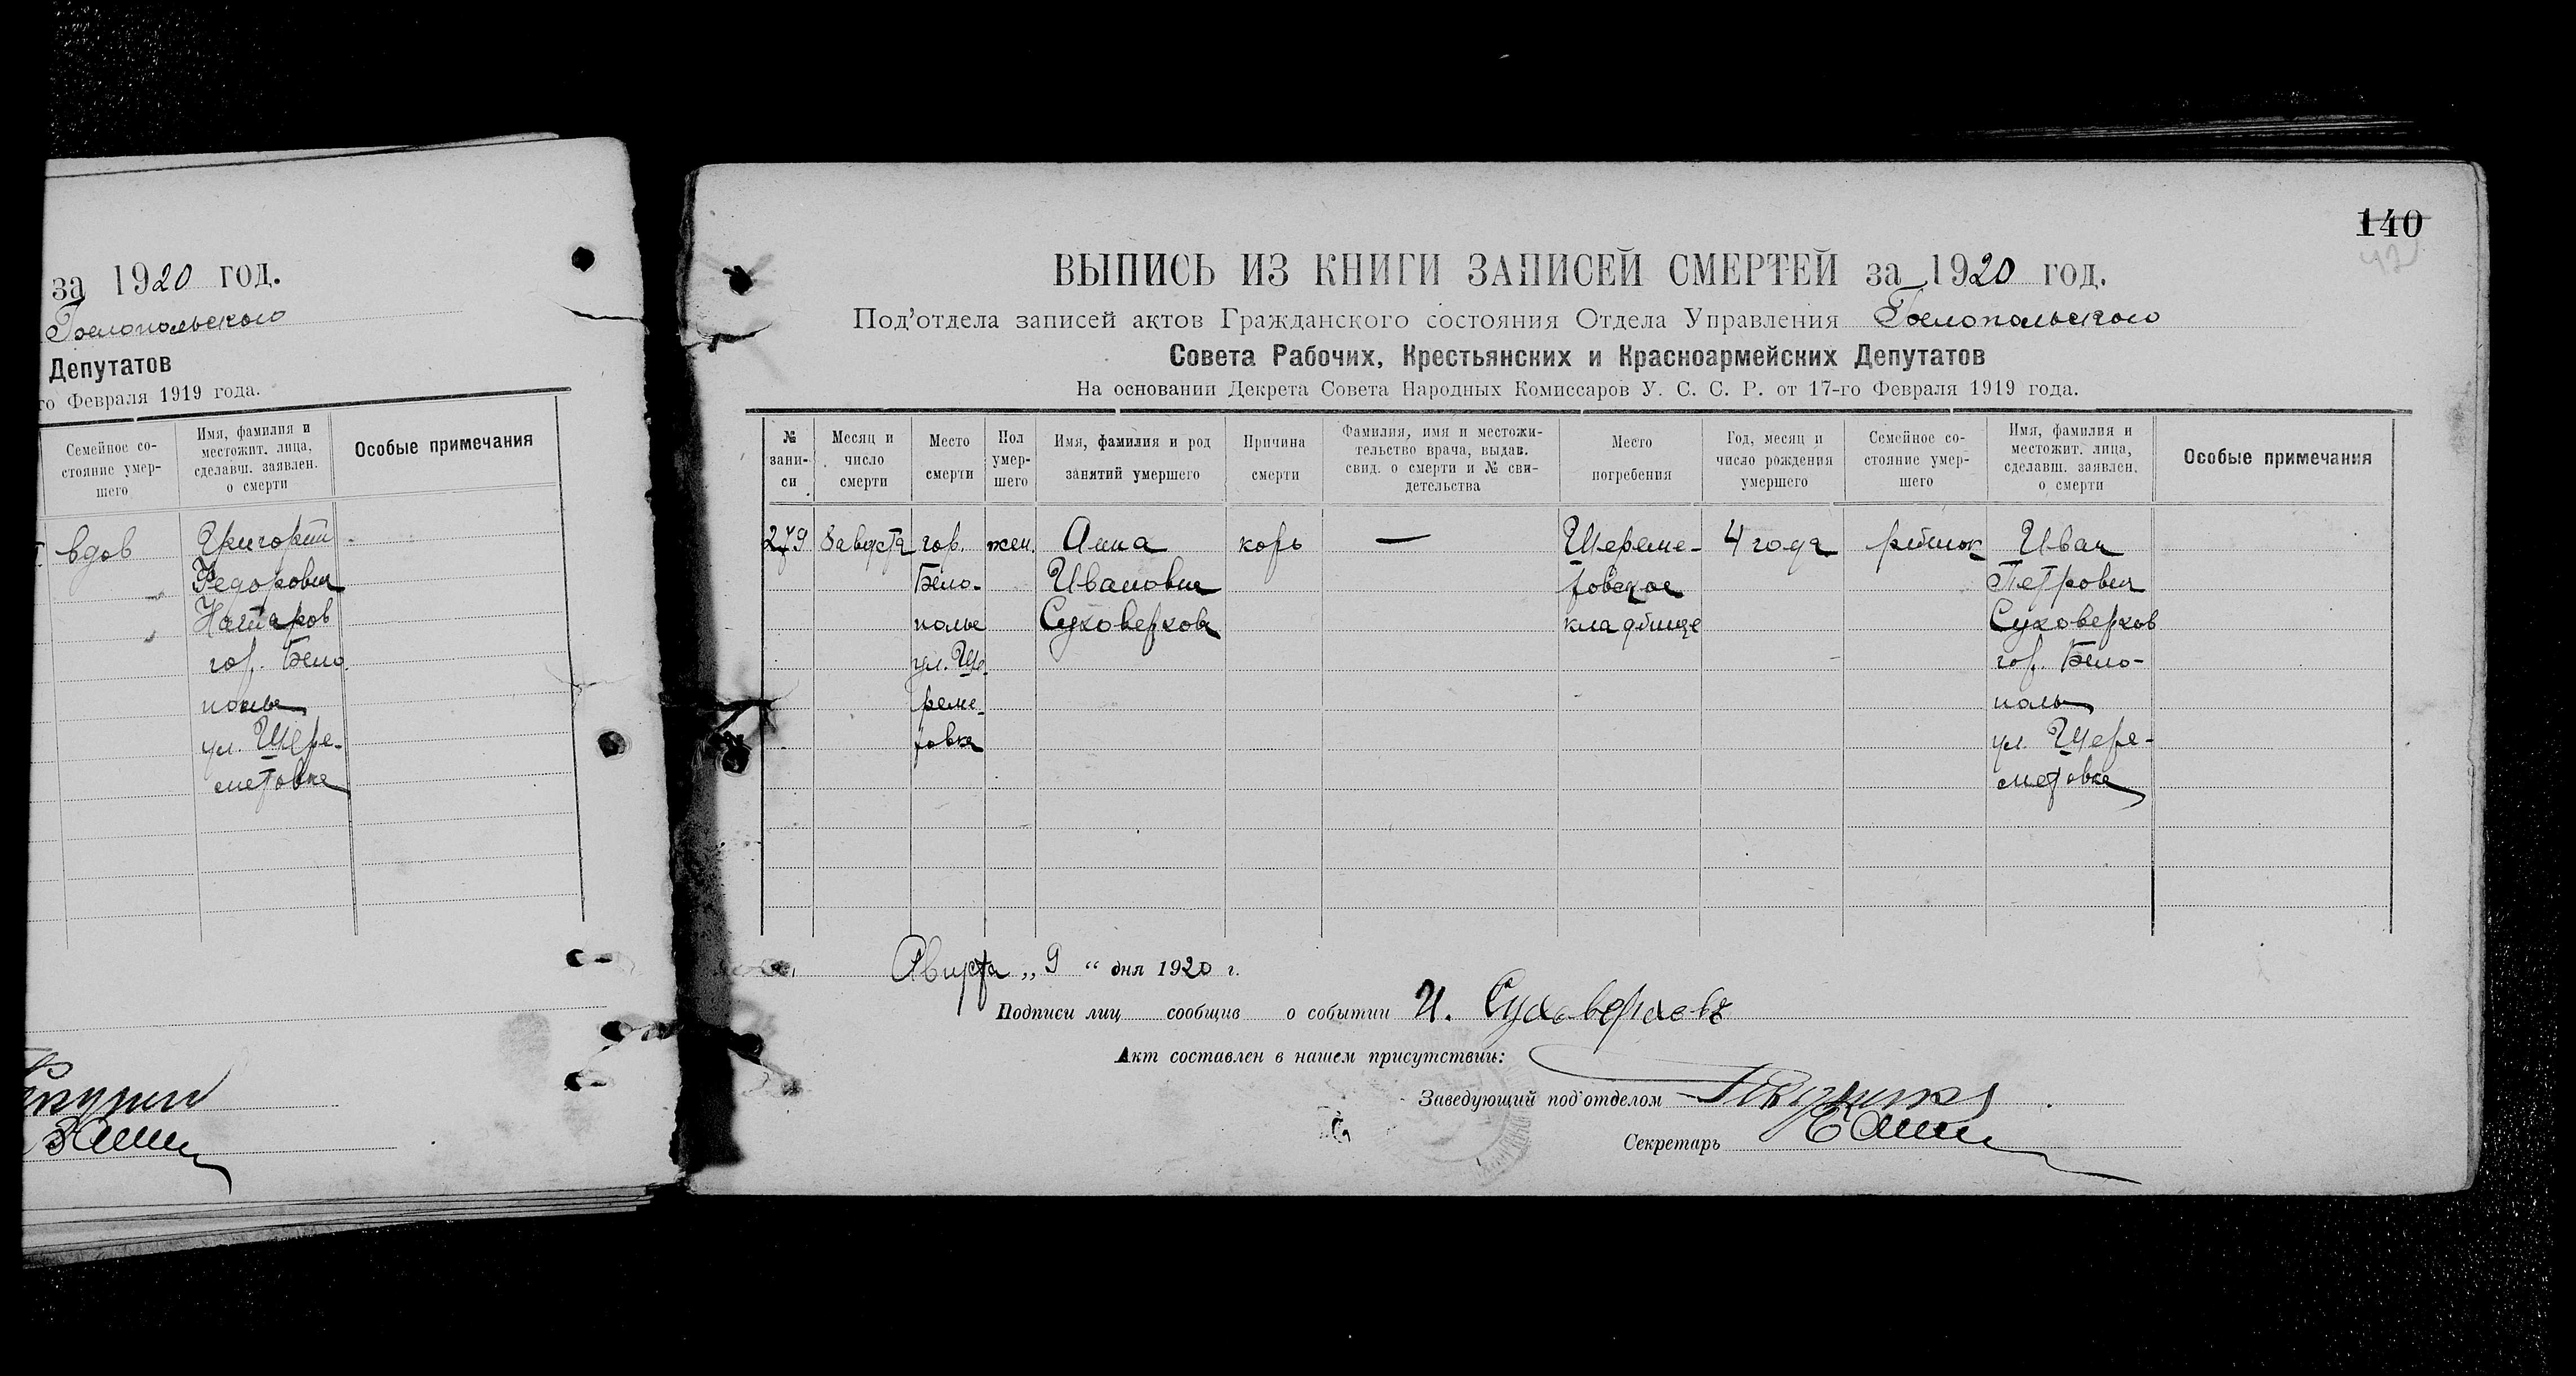 за 1920 год.
Белопольского
Депутатов
го Февраля 1919 года.
Семейное со-
стояние умер-
шего
Имя, фамилия и
местожит. лица,
сделавш. заявлен.
о смерти
Особые примечания
вдов
Григорий
Федорович
гор. Бело
полье
ул. Шере-
метовка
140
ВЫПИСЬ ИЗ КНИГИ ЗАПИСЕЙ СМЕРТЕЙ за 1920 год.
Под'отдела записей актов Гражданского состояния Отдела Управления Белопольского
Совета Рабочих, Крестьянских и Красноармейских Депутатов
На основании Декрета Совета Народных Комиссаров У. С. С. Р. от 17-го Февраля 1919 года.
№
запи-
си
Месяц и
число
смерти
Место
смерти
Пол
умер-
шего
Имя, фамилия и род
занятий умершего
Причина
смерти
Фамилия, имя и местожи-
тельство врача, выдав.
свид. о смерти и № сви-
детельства
Место
погребения
Год, месяц и
число рождения
умершего
Семейное со-
стояние умер-
шего
Имя, фамилия и
местожит. лица,
сделавш. заявлен.
о смерти
Особые примечания
279 8 августа гор. жен. Анна корь — Шереме- 4 года Иван
Бело- Ивановна товское Петрович
полье Суховерхова кладбище Суховерхов
ул. Ше гор. Бело-
реме- полье
товка ул. Шере-
метовка
Августа „ 9 “ дня 1920 г.
Подписи лиц сообщив о событии И. Суховерховъ
Акт составлен в нашем присутствии:
Заведующий под'отделом
Секретарь